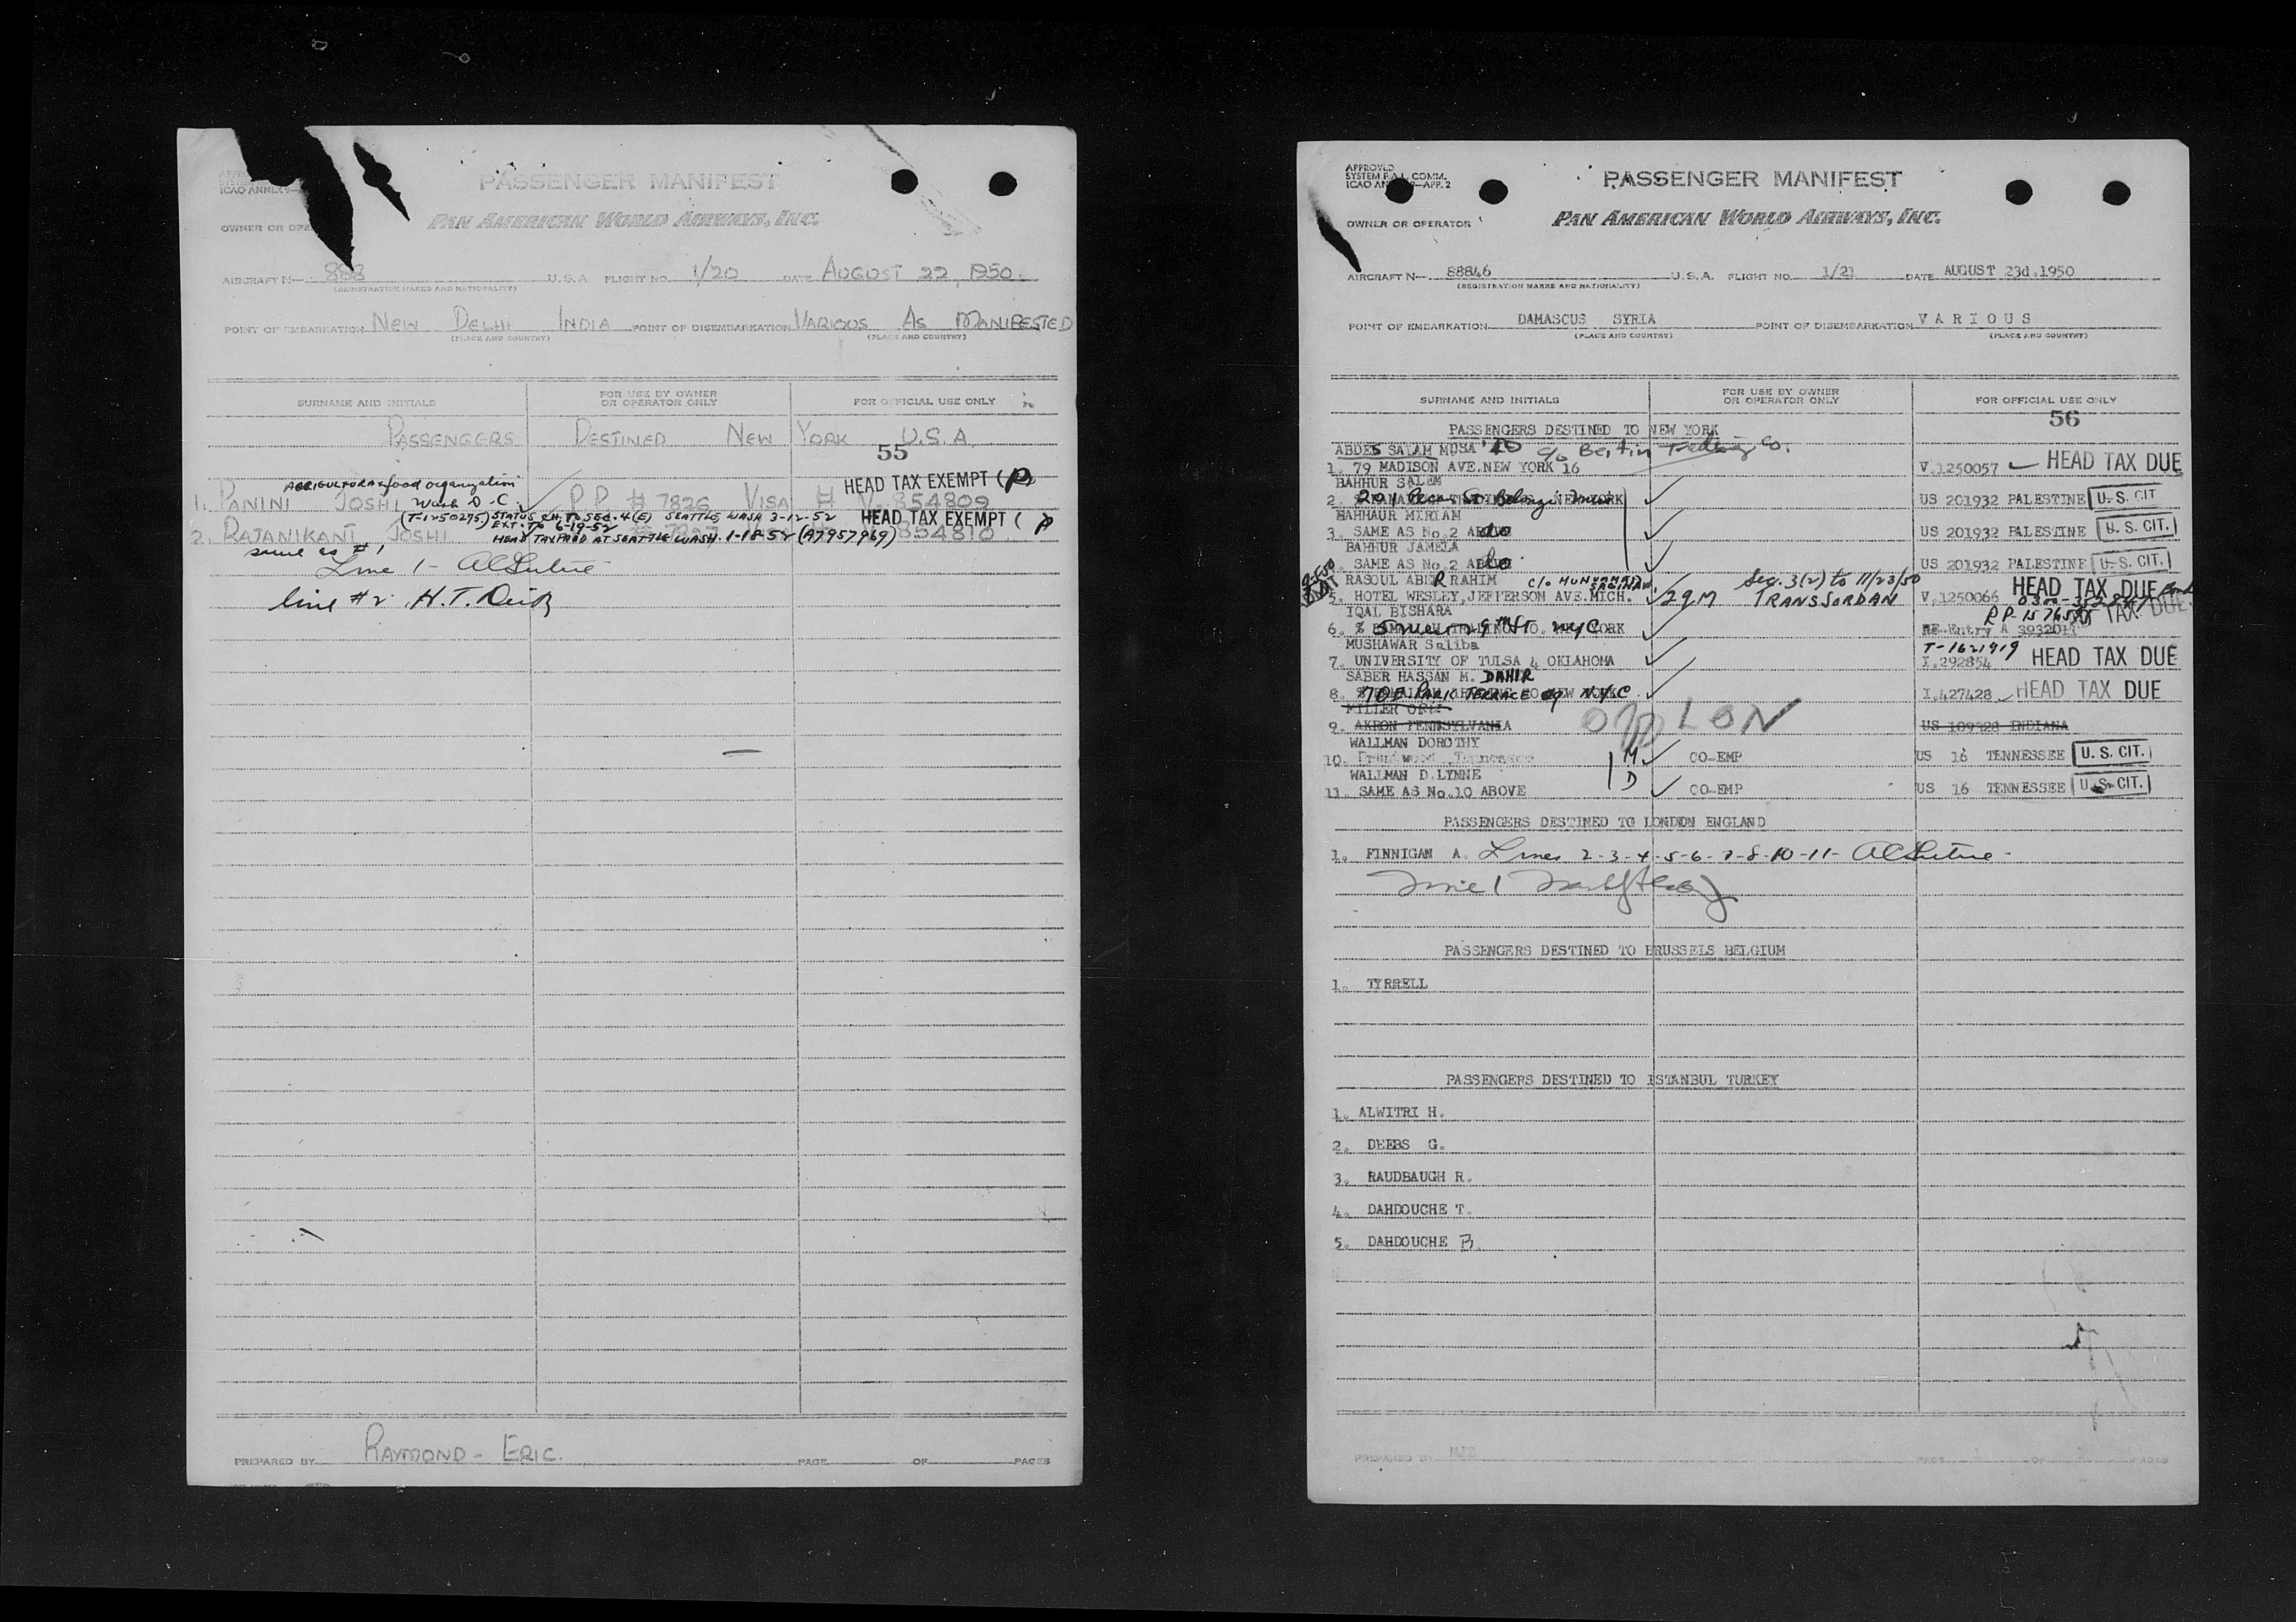 ICAO ANNEX 9—
PASSENGER MANIFEST
PAN AMERICAN WORLD AIRWAYS, INC.
OWNER OR OPE
AIRCRAFT N— 888 U.S.A. FLIGHT NO. 1/20 DATE AUGUST 22, 1950.
(REGISTRATION MARKS AND NATIONALITY)
POINT OF EMBARKATION NEW DELHI INDIA POINT OF DISEMBARKATION VARIOUS AS MANIFESTED
(PLACE AND COUNTRY) (PLACE AND COUNTRY)
SURNAME AND INITIALS FOR USE BY OWNER OR OPERATOR ONLY FOR OFFICIAL USE ONLY
PASSENGERS DESTINED NEW YORK U.S.A.
55
AGRICULTURAL & food organization
HEAD TAX EXEMPT (P)
1. PANINI JOSHI Wash D.C. P.P. # 7826 VISA # V-854809
(T-1250275) STATUS CH. TO SEC. 4(E) SEATTLE, WASH 3-12-52 HEAD TAX EXEMPT ( P
EXT. TO 6-19-52
2. RAJANIKANT JOSHI # 7827 854810
HEAD TAX PAID AT SEATTLE WASH. 1-18-52 (A7957969)
same as #1
Line 1 -
line #2 H.T.
RAYMOND - ERIC.
PREPARED BY PAGE OF PAGES
APPROVED
SYSTEM F.A.L. COMM.
ICAO ANNEX 9—APP. 2
PASSENGER MANIFEST
PAN AMERICAN WORLD AIRWAYS, INC.
OWNER OR OPERATOR
AIRCRAFT N— 88846 U.S.A. FLIGHT NO. 1/21 DATE AUGUST 23d.1950
(REGISTRATION MARKS AND NATIONALITY)
POINT OF EMBARKATION DAMASCUS SYRIA POINT OF DISEMBARKATION VARIOUS
(PLACE AND COUNTRY) (PLACE AND COUNTRY)
SURNAME AND INITIALS FOR USE BY OWNER OR OPERATOR ONLY FOR OFFICIAL USE ONLY
56
PASSENGERS DESTINED TO NEW YORK
ABDES SALAM MUSA c/o Beitin Trading Co.
1. 79 MADISON AVE.NEW YORK 16 V.1250057 HEAD TAX DUE
BAHHUR SALEM
2. 201 St NEW YORK US 201932 PALESTINE U.S. CIT
BAHHAUR MIRIAM
3. SAME AS No.2 ABOVE do US 201932 PALESTINE U.S. CIT.
BAHHUR JAMELA
4. SAME AS No.2 ABOVE do US 201932 PALESTINE U.S. CIT.
RASOUL ABER RAHIM c/o SAGINAW Sec. 3(2) to 11/23/50 HEAD TAX DUE
5. HOTEL WESLEY,JEFFERSON AVE.MICH. 29M TRANSJORDAN V.1250066
IQAL BISHARA TAX DUE
6. % 5 West 29th St. NYC RE-Entry A 393201
MUSHAWAR Saliba T-1621919
7. UNIVERSITY OF TULSA 4 OKLAHOMA I.292854 HEAD TAX DUE
SABER HASSAN M. DAHIR
8. 70 E PARK TERRACE NYC I.427428 HEAD TAX DUE
MILLER ORIE
9. AKRON PENNSYLVANIA OFF LON US 109328 INDIANA
WALLMAN DOROTHY
10. M CO-EMP US 16 TENNESSEE U.S. CIT.
WALLMAN D.LYNNE
11. SAME AS No.10 ABOVE D CO-EMP US 16 TENNESSEE U.S. CIT.
PASSENGERS DESTINED TO LONDON ENGLAND
1. FINNIGAN A. Lines 2-3-4-5-6-7-8-10-11-
PASSENGERS DESTINED TO BRUSSELS BELGIUM
1. TYRRELL
PASSENGERS DESTINED TO ISTANBUL TURKEY
1. ALWITRI H.
2. DEEBS G.
3. RAUDBAUGH R.
4. DAHDOUCHE T.
5. DAHDOUCHE B.
PREPARED BY PAGE OF PAGES